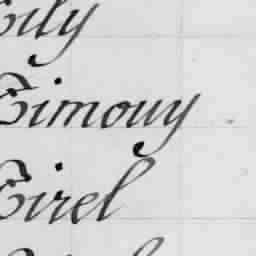 Eily
Eimouy
Eirel